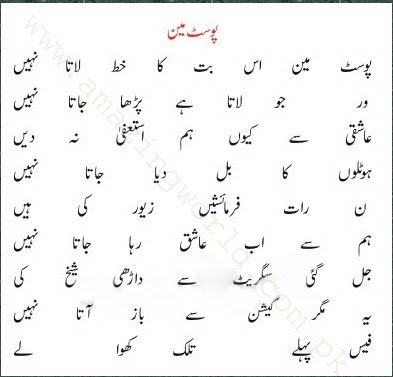 پوسٹ مین
پوسٹ مین اس بت کا خط لاتا نہیں
ور جو لاتا ہے پڑھا جاتا نہیں
عاشقی سے کیوں ہم استعفیٰ نہ دیں
ہوٹلوں کا بل دیا جاتا نہیں
ن رات فرمائشیں زیور کی ہیں
ہم سے اب عاشق رہا جاتا نہیں
جل گئی سگریٹ سے داڑھی شیخ کی
یہ مگر گیشن سے باز آتا نہیں
فیس پہلے تلک کھوا لے
www.amazingworld.com.pk